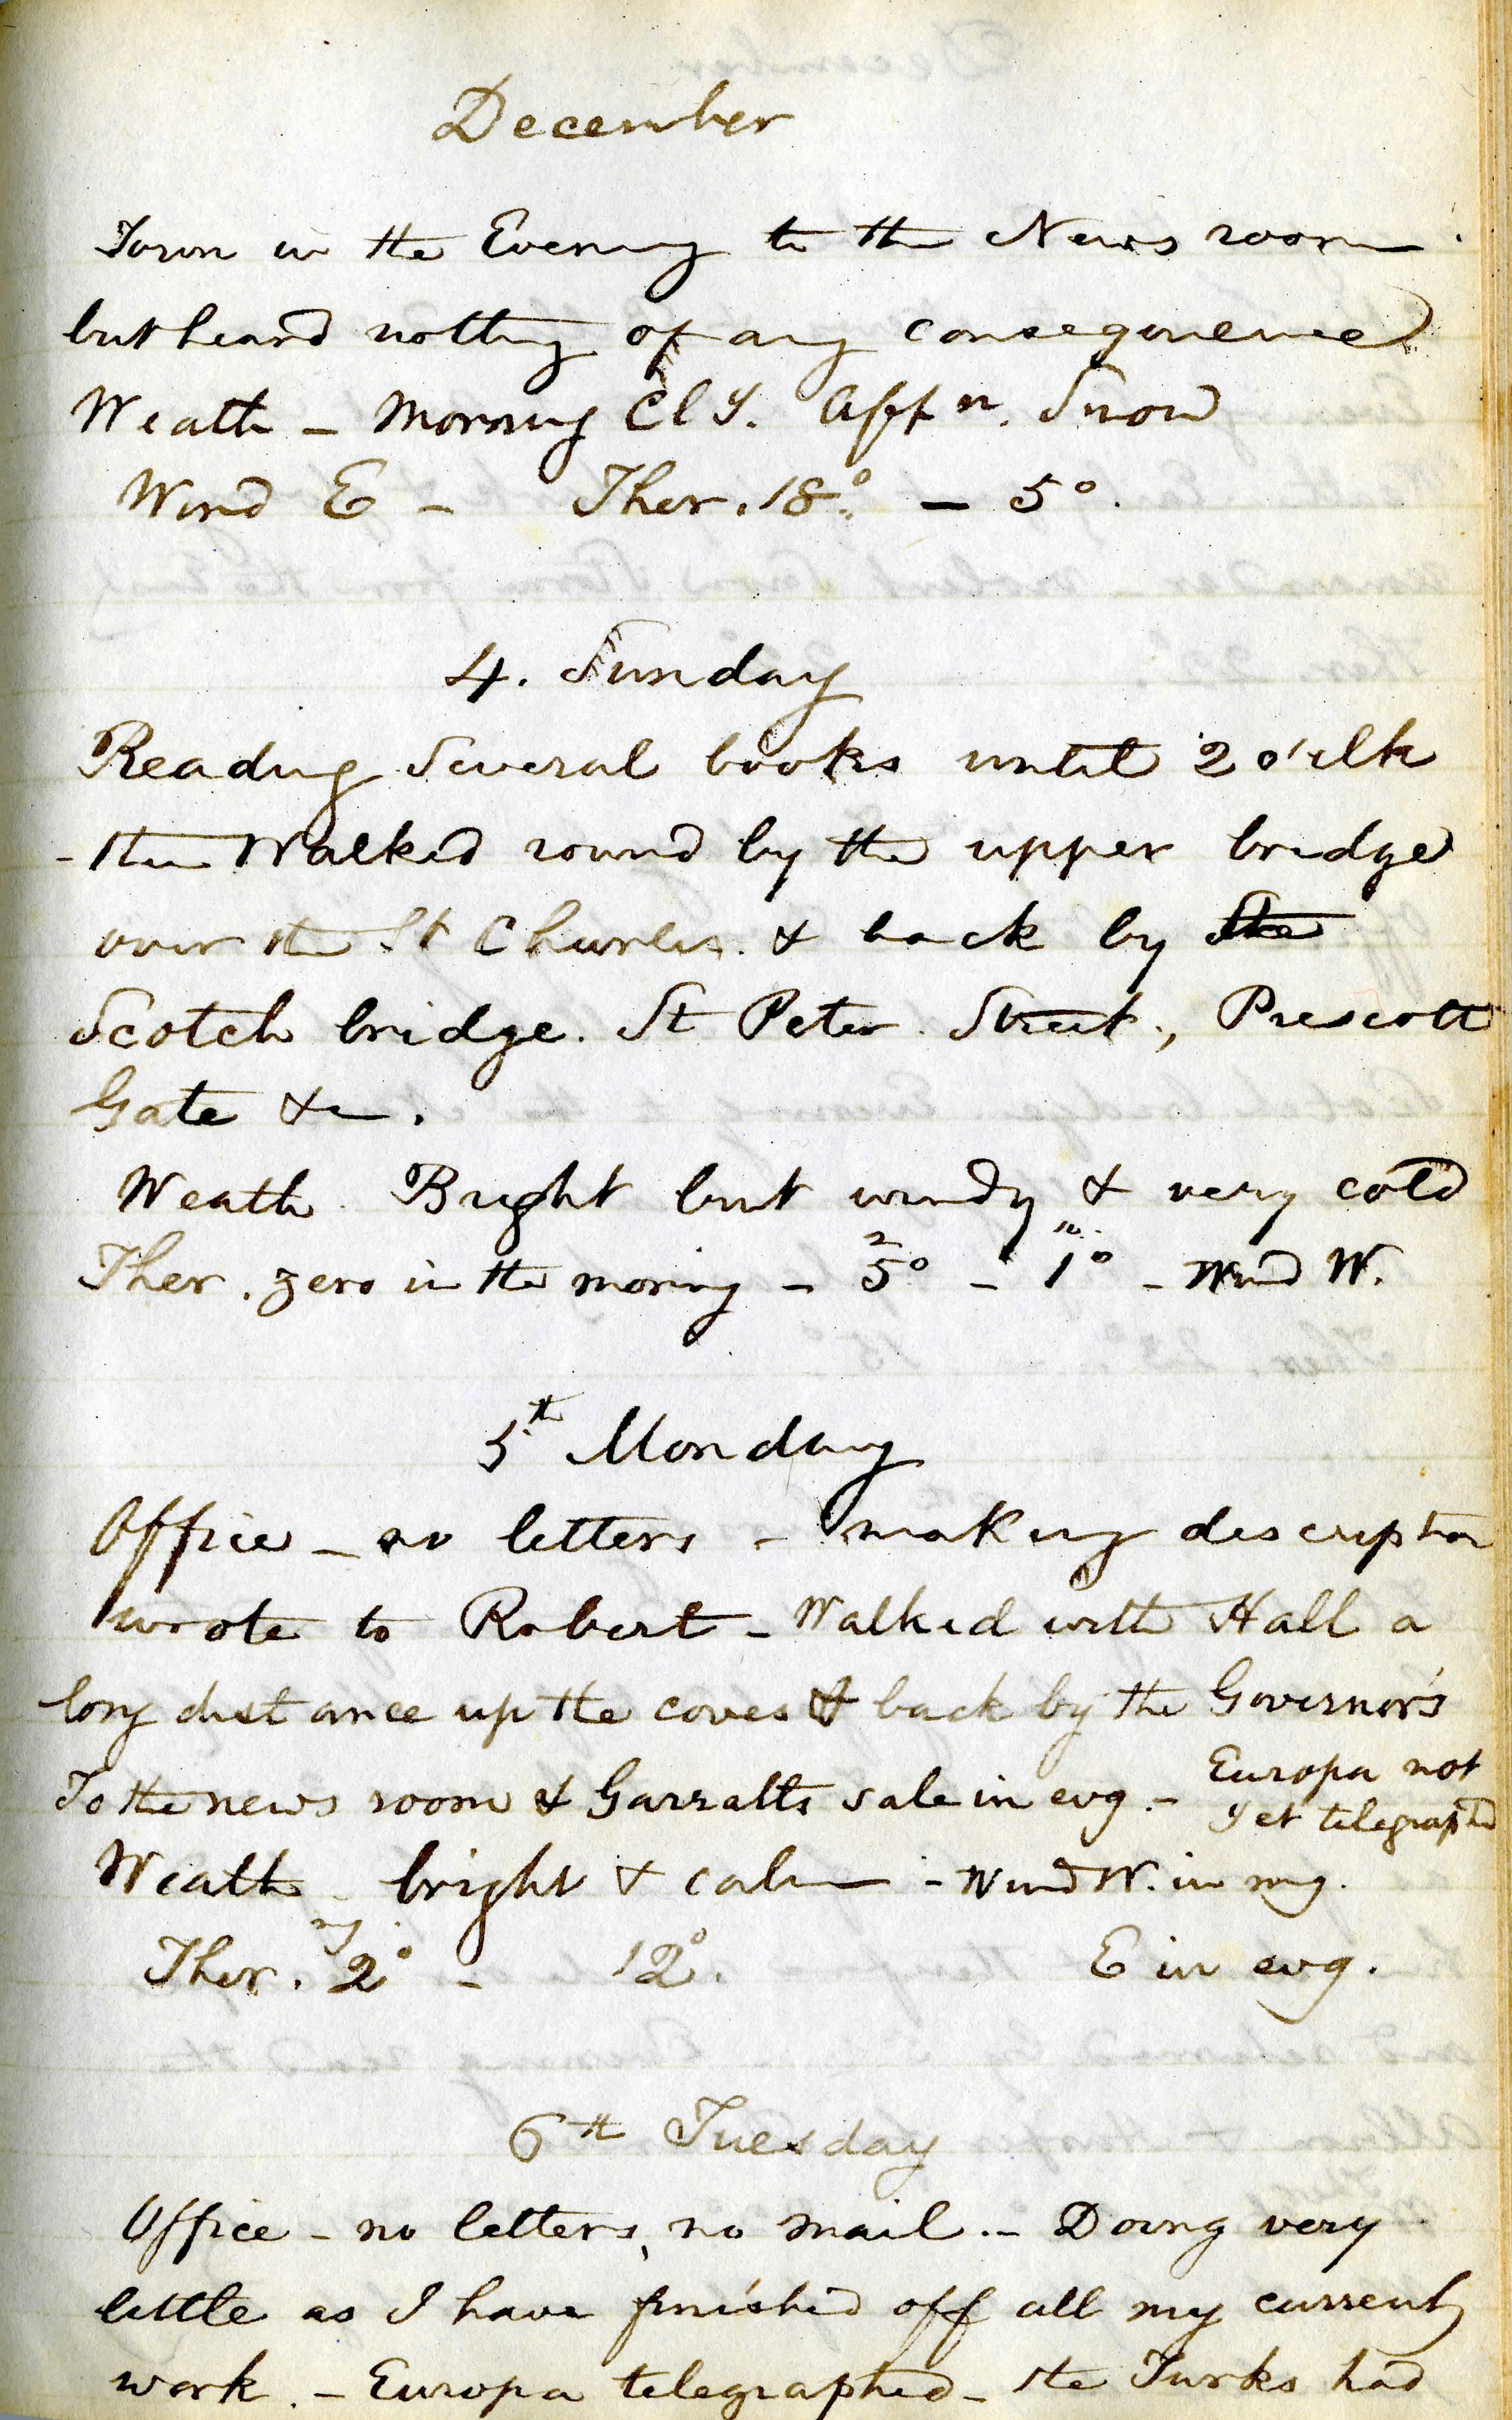 December
Town in the Evening to the News room
but heard nothing of any consequence
Weath - Morning Cly. Aftn. Snow
Wind E - Ther. 18° - 5°.
4. Sunday
Reading Several books until 2 o'clk
- then Walked round by the upper bridge
over the St Charles & back by the
Scotch bridge. St Peter Street, Prescott
Gate &c.
Weath. Bright but windy & very cold
Ther. zero in the morning - 5° - 1° - Wind W.
5th Monday
Office - no letters - making description
wrote to Robert - Walked with Hall a
long distance up the coves & back by the Governor's
To the news room & Garratts sale in evg. - Europa not
yet telegraphd
Weath - bright & calm - Wind W. in mg.
mg.
Ther. 2° - 12°. E in evg.
6th Tuesday
Office - no letters, no mail. - Doing very
little as I have finished off all my current
work. - Europa telegraphed - the Turks had